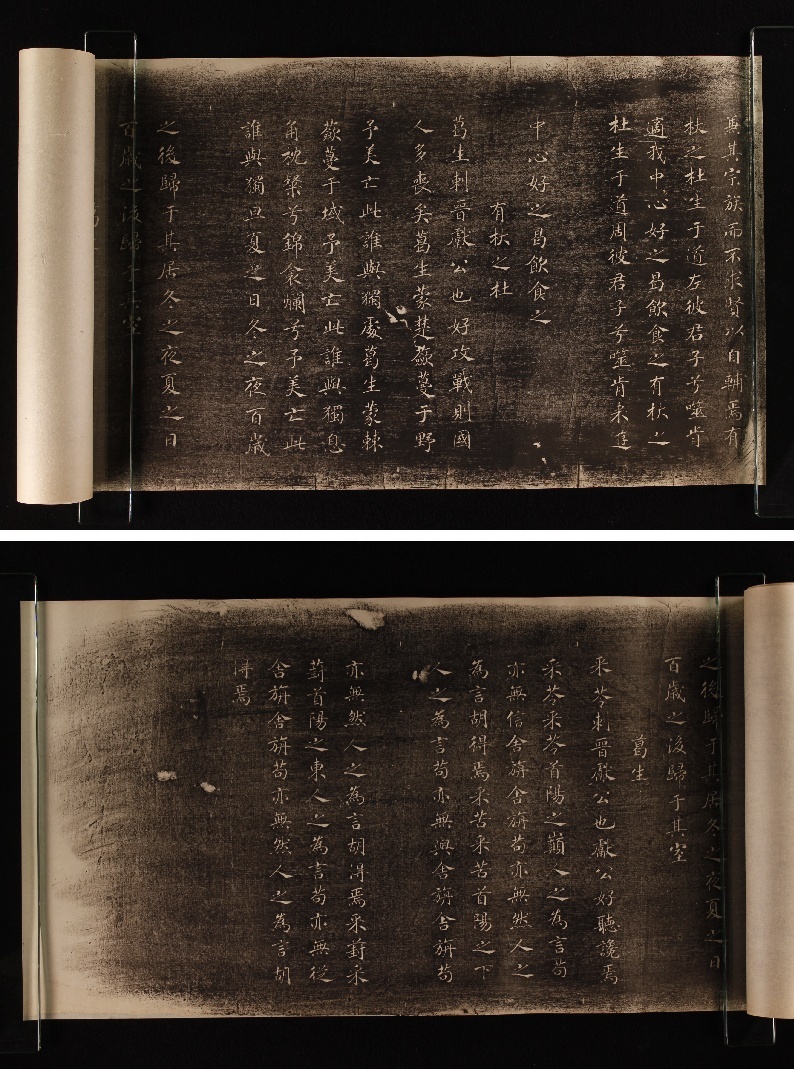 無其宗族而不求賢以自輔焉有
杕之杜生于道左彼君子兮噬肯
適我中心好之曷飲食之有杕之
杜生于道周彼君子兮噬肯來遊
中心好之曷飲食之
有杕之杜
葛生刺晉獻公也好攻戰則國
人多喪矣葛生蒙楚蘞蔓于野
予美亡此誰與獨處葛生蒙棘
蘞蔓于域予美亡此誰與獨息
角枕粲兮錦衾爛兮予美亡此
誰與獨旦夏之日冬之夜百歲
之後歸于其居冬之夜夏之日
百歲之後歸于其室
葛
之後歸于其居冬之夜夏之日
百歲之後歸于其室
葛生
采苓刺晉獻公也獻公好聽讒焉
采苓采苓首陽之巔人之為言苟
亦無信舍旃舍旃苟亦無然人之
為言胡得焉采苦采苦首陽之下
人之為言苟亦無與舍旃舍旃苟
亦無然人之為言胡得焉采葑采
葑首陽之東人之為言苟亦無從
舍旃舍旃苟亦無然人之為言胡
得焉